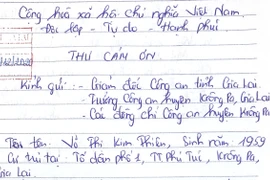 Cộng hoà xã hội chỉ nghĩa Việt Nam
- Độc lập - Tự do - Hạnh phúc
THƯ CẢM ƠN
Kính gửi: - Giám đốc Công an tỉnh Gia Lai
- Trưởng Công an huyện Krông Pa, Gia Lai
- Các đồng chí Công an huyện Krông Pa
Tôi tên: Võ Thị Kim Phiên, Sinh năm 1959
Cư trú tại: Tổ dân phố 1, TT. Phú Túc, Krông Pa,
Gia Lai.